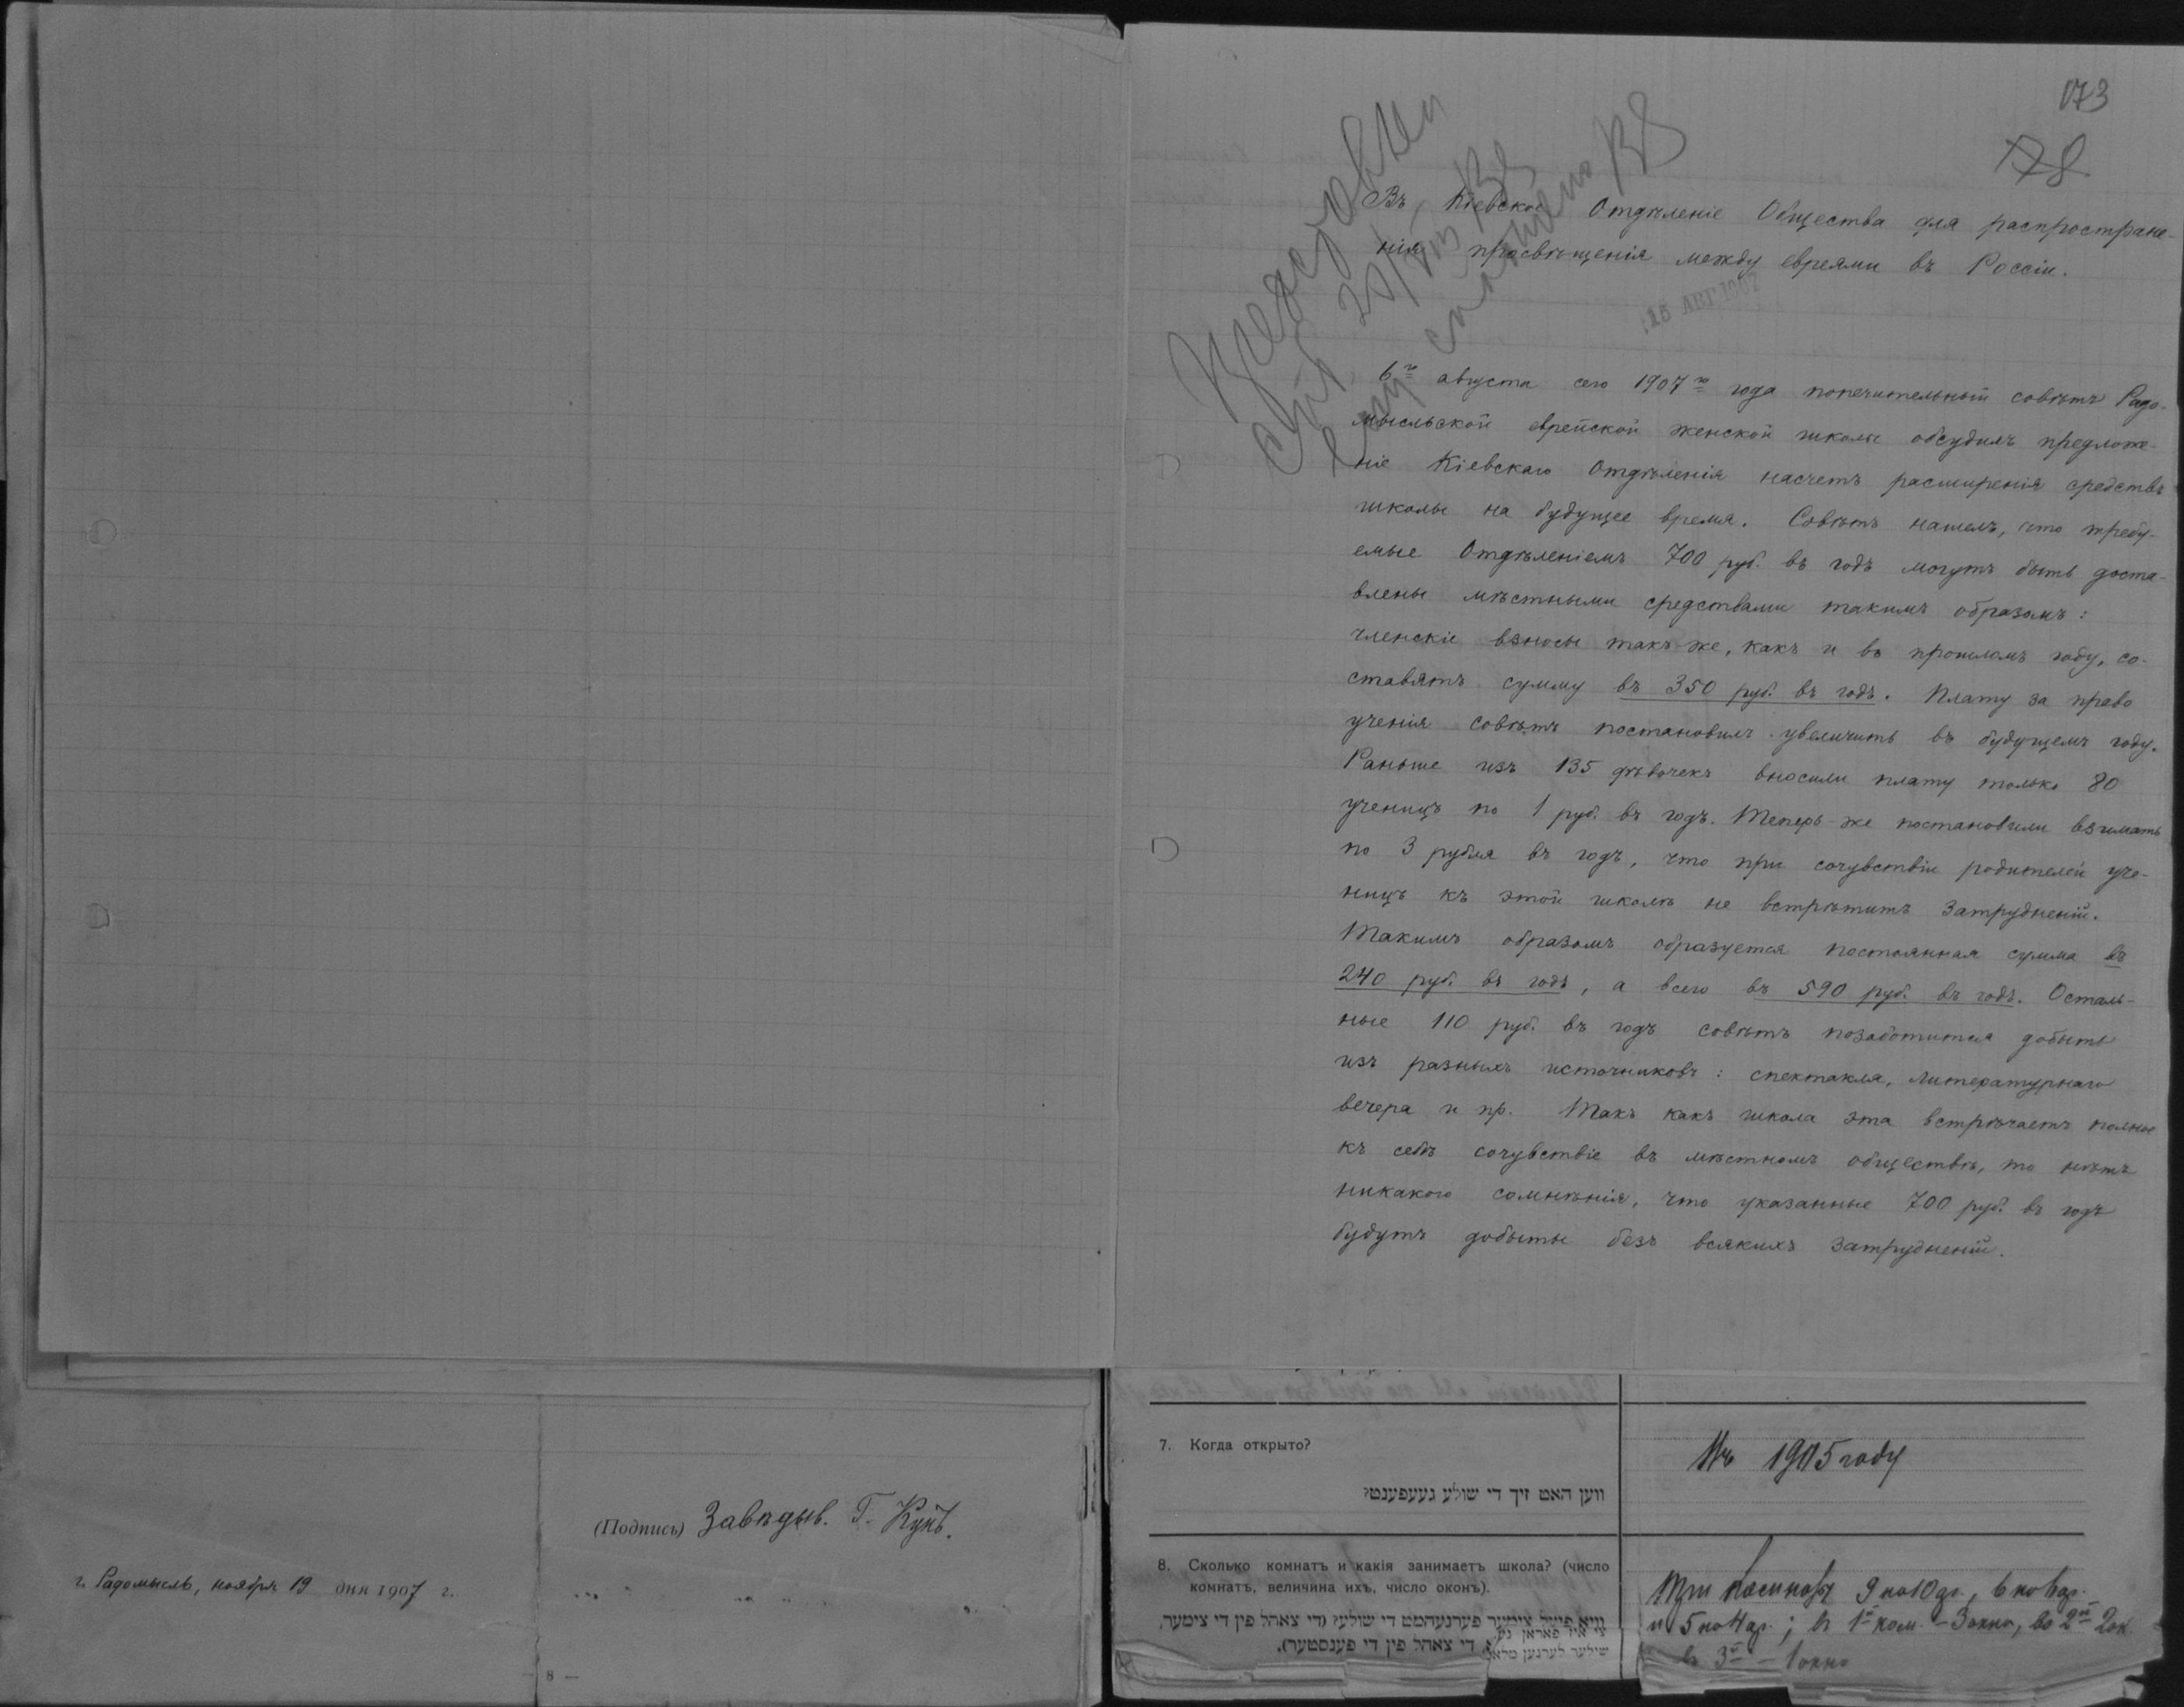 173
178
Въ Кіевское Отдѣленіе Общества для распростране-
нія просвѣщенія между евреями въ Россіи.
16 АВГ 1907
6го августа сего 1907го года попечительный совѣтъ Радо-
мысльской еврейской женской школы обсудилъ предложе-
ніе Кіевскаго Отдѣленія насчетъ расширенія средствъ
школы на будущее время. Совѣтъ нашелъ, что требу-
емые Отдѣленіемъ 700 руб. въ годъ могутъ быть доста-
влены мѣстными средствами такимъ образомъ:
членскіе взносы такъ же, какъ и въ прошломъ году, со-
ставятъ сумму въ 350 руб. въ годъ. Плату за право
ученія совѣтъ постановилъ увеличить въ будущемъ году.
Раньше изъ 135 дѣвочекъ вносили плату только 80
ученицъ по 1 руб. въ годъ. Теперь-же постановили взимать
по 3 рубля въ годъ, что при сочувствіи родителей уче-
ницъ къ этой школѣ не встрѣтитъ затрудненій.
Такимъ образомъ образуется постоянная сумма въ
240 руб. въ годъ, а всего въ 590 руб. въ годъ. Осталь-
ные 110 руб. въ годъ совѣтъ позаботится добыть
изъ разныхъ источниковъ: спектакля, литературнаго
вечера и пр. Такъ какъ школа эта встрѣчаетъ полное
къ себѣ сочувствіе въ мѣстномъ обществѣ, то нѣтъ
никакого сомнѣнія, что указанные 700 руб. въ годъ
будутъ добыты безъ всякихъ затрудненій.
(Подпись) Завѣдыв. Г. Кунъ.
г. Радомысль, ноября 19 дня 1907 г.
8 —
7. Когда открыто?
ווען האט זיך די שולע געעפענט?
Въ 1905 году
8. Сколько комнатъ и какія занимаетъ школа? (число
комнатъ, величина ихъ, число оконъ).
וויא פיעל צימער פערנעהמט די שולע? (די צאהל פין די צימער,
די צאהל פין די פענסטער).
שילער לערנען
Три комнаты 9 на 10 ар., 6 на 6 ар.
и 5 на 4 ар.; въ 1й ком. - 3 окна, во 2й 2 ок.
въ 3й - 1 окно